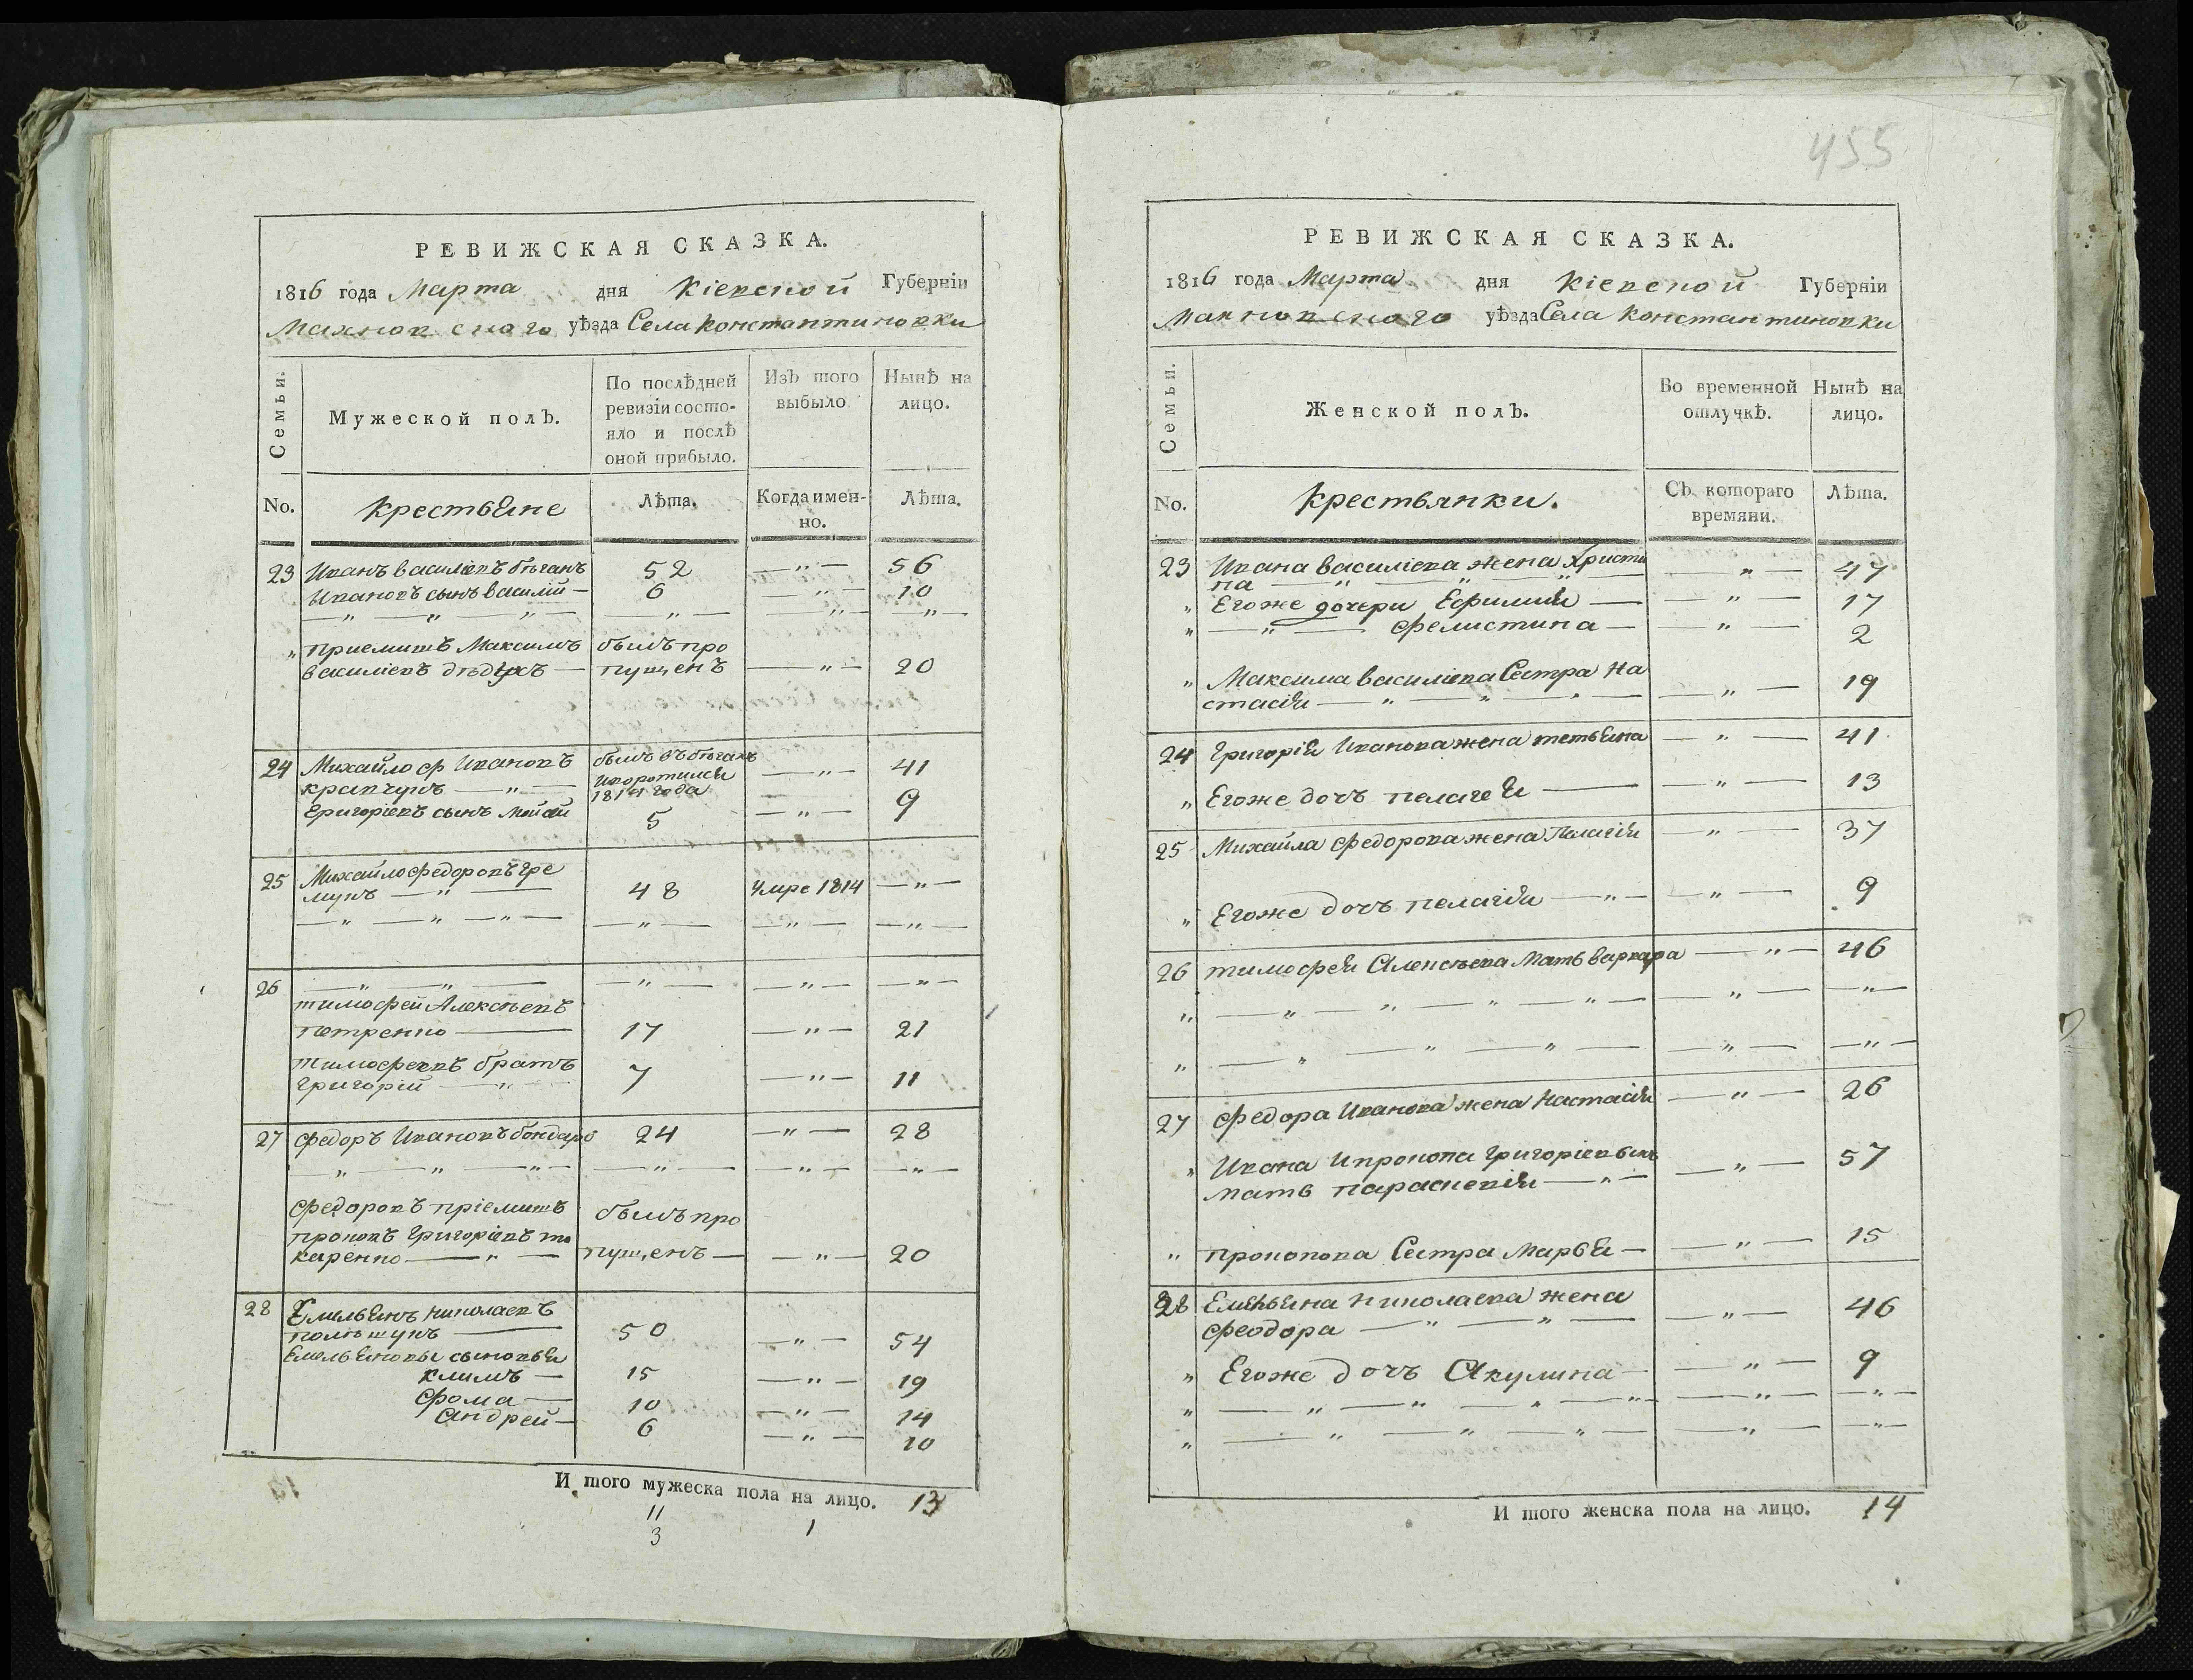 РЕВИЖСКАЯ СКАЗКА.
1816 года Марта дня Кіевской Губерніи
Махновского уѣзда Села Константиновки
Семьи.
Мужеской полъ.
По послѣдней
ревизіи состо-
яло и послѣ
оной прибыло.
Изъ того
выбыло
Нынѣ на
лицо.
No. Крестьяне Лѣта. Когда имен-
но.
Лѣта.
23 Иванъ Василіевъ 52 — „ — 56
Ивановъ сынъ Василій — 6 — „ — 10
— „ — „ — „ — — „ — — „ — — „ —
„ Приемишъ Максимъ былъ про
Василіевъ — пущенъ — „ — 20
24 Михайло Ф Ивановъ былъ въ бѣгахъ
Кравчукъ — „ — Иворотился — „ — 41
1814 года
Григоріевъ сынъ 5 — „ — 9
25 Михайло Федоровъ Гре
мукъ — „ — 48 Умре 1814 — „ —
— „ — „ — „ — — „ — — „ — — „ —
26 — „ — „ — — „ — — „ — — „ —
Тимофей Алексѣевъ
Петренко — 17 — „ — 21
Тимофеевъ братъ
Григорій — „ 7 — „ — 11
27 Федоръ Ивановъ Бондаръ 24 — „ — 28
— „ — „ — „ — — „ — — „ — — „ —
Федоровъ пріемишъ былъ про
Прокопъ Григоріевъ То
каренко — „ — пущенъ — — „ — 20
28 Емельянъ Николаевъ
Полѣщукъ — 50 — „ — 54
Емельяновы сыновья
Климъ — 15 — „ — 19
Фома — 10 — „ — 14
Андрей — 6 — „ — 10
И того мужеска пола на лицо. 13
11
3 1
455
РЕВИЖСКАЯ СКАЗКА.
1816 года Марта дня Кіевской Губерніи
Махновского уѣзда Села Константиновки
Семьи.
Женской полъ.
Во временной
отлучкѣ.
Нынѣ на
лицо.
No. Крестьянки. Съ котораго
времяни.
Лѣта.
23 Ивана Василіева жена Христи
на — „ — „ — „ — „ — 47
„ Егоже дочери Ефимия — — „ — 17
„ — „ — Фелистина — — „ — 2
„ Максима Василіева Сестра На
стасія — „ — „ — „ — — „ — 19
24 Григорія Иванова жена Тетьяна — „ — 41
„ Егоже дочъ Пелагея — — „ — 13
25 Михайла Федорова жена Пелагія — „ — 37
„ Егоже дочъ Пелагія — „ — — „ — 9
26 Тимофея Алексѣева Мать Варвара — „ — 46
„ — „ — „ — „ — „ — — „ — — „ —
„ — „ — „ — „ — — „ — — „ —
27 Федора Иванова жена Настасія — „ — 26
„ Ивана Ипрокопа Григоріевыхъ
Мать Параскевія — „ — — „ — 57
„ Прокопова Сестра Марья — — „ — 15
28 Емельяна Николаева жена
Феодора — „ — „ — — „ — 46
„ Егоже дочъ Акулина — — „ — 9
„ — „ — „ — „ — „ — — „ — — „ —
„ — „ — „ — „ — — „ — — „ —
И того женска пола на лицо. 14